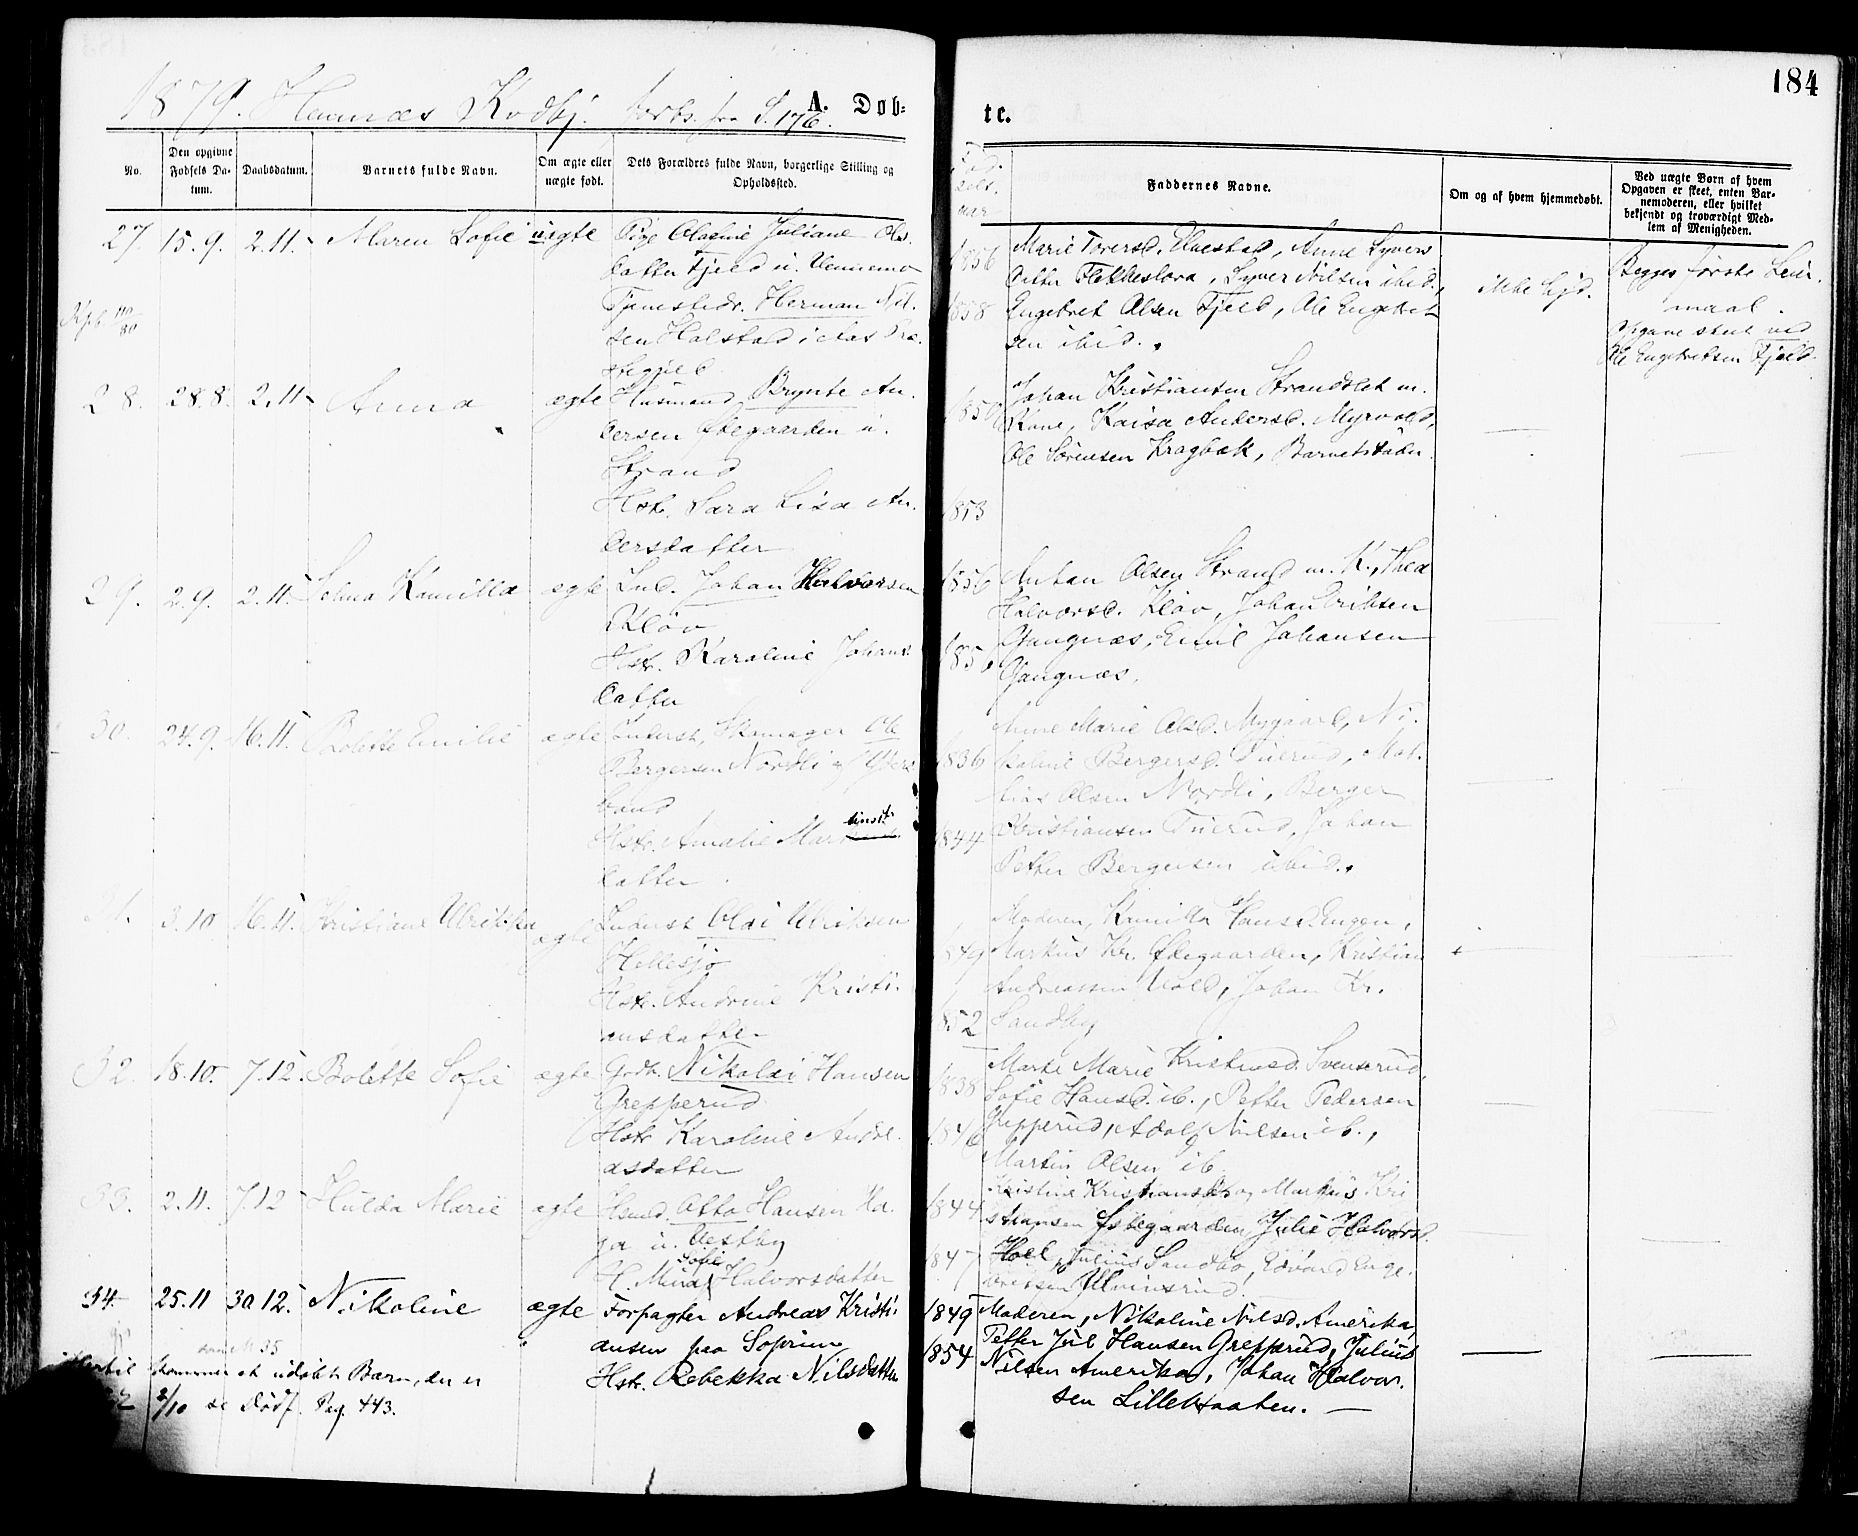 184
1879. Hemnæs Kvdbj. forts. fra S. 176.
A. Døb-
te.
No.
Den opgivne Fødsels Datum.
Daabsdatum.
Barnets fulde Navn.
Om ægte eller uægte født.
Dets Forældres fulde Navn, borgerlige Stilling og Opholdssted.
Faddernes Navne.
Om og af hvem hjemmedøbt.
Ved uægte Børn af hvem Opgaven er skeet, enten Barnemoderen, eller hvilket bekjendt og troværdigt Medlem af Menigheden.
27. 15.9. 2.11. Maren Sofie uægte Pige Juliane Ols-
datter Fjeld u.
Tjenestedr. Herman Nil-
sen Halstad
1856
1858
Marie Halstad, Anne Syvers
datter Flekkeslora, Syver Nilsen ibid.,
Engebret Olsen Fjeld, Ole Engebret-
sen ibid.
Begges første Leier-
maal.
Ole Engebretsen Fjeld.
28. 28.8. 2.11. Anna ægte Husmand Brynte An-
dersen Ødegaarden u.
Strand
Hstr. Sara Lisa An-
dersdatter
1850
1853
Johan Kristiansen Strandslet m.
Kone, Kaisa Andersd. Myrvold,
Ole Sørensen Kragbæk, Barnets Fader.
29. 2.9. 2.11. Selma Kamilla ægte Ind. Johan Halvorsen
Kløv
Hstr. Karoline Johans
datter
1856
185
Anton Olsen Strand m. K., Thea
Halvorsd. Kløv, Johan Eriksen
Gangnæs, Emil Johansen
Gangnæs.
30. 24.9. 16.11. Bolette Emilie ægte Inderst, Skomager Ole
Bergersen Nordli
Hstr. Amalie Mar
datter
1836
1844
Anne Marie Olsd. Nygaard, Ni-
koline Bergersd. Tuerud, Mat-
hias Olsen Nordli, Berger
Kristiansen Tuerud, Johan
Petter Bergersen ibid.
31. 3.10 16.11. Kristiane Ulrikka ægte Inderst Olai Ulriksen
Hellesjø
Hstr. Andrine Kristi-
ansdatter
1849
1852
Moderen, Kamilla Hansd. Engen,
Markus Kr. Ødegaarden, Kristian
Andreassen Vold, Johan Kr.
Sandby
32. 18.10. 7.12. Bolette Sofie ægte Gdb. Nikolai Hansen
Grepperud
Hstr Karoline Andre-
asdatter
1838
1846
Marte Marie Kristiansd. Svenserud,
Sofie Hansd. ib., Petter Pedersen
Grepperud, Adolf Nilsen ib.,
Martin Olsen ib.
33. 2.11. 7.12 Hulda Marie ægte Hsmd. Otto Hansen Ha-
ga u. Vestby
Sofie
H. Mina Halvorsdatter
1844
1847
Kristine Kristiansd. og Markus Kri
stiansen Ødegaarden, Julie Halvorsd.
Hoel, Julius Sandbo, Edvard Enge-
bretsen
34. 25.11 30.12. Nikoline ægte Forpagter Andreas Kristi-
ansen paa Soprim
Hstr. Rebekka Nilsdatter
1849
1854
Moderen, Nikoline Nilsd. Amerika,
Petter Jul. Hansen Grepperud, Julius
Nilsen Amerika, Johan Halvor-
sen Lillekraaken.
No 35
kommer et udøbt Barn, der er
2/10 se Dødf. Pag. 443.